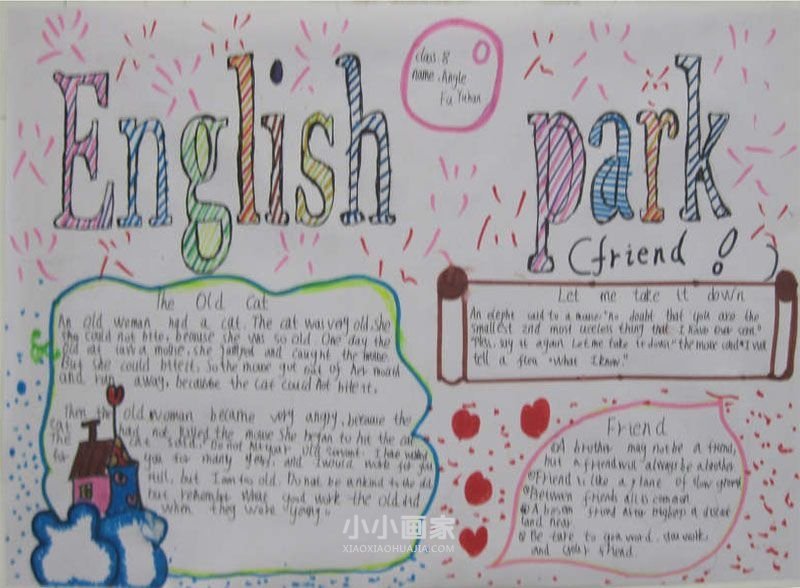 English park
class: 8
name: Angle
Fu Yuhan
(friend!)
The Old Cat
An old woman had a cat. The cat was very old. she
could not bite, because she was so old. One day the
old cat saw a mouse. she jumped and caught the mouse.
But she could bite it. So the mouse got out of her mouth
and run away, because the cat could not bite it.
Then the old woman became very angry, because the
cat had not killed the mouse She began to hit the cat
The cat said: Do not hit your old
for you for many years, and I would work for you
still, but I am too old. Do not be unkind to the old
but remember what good work the old did
when they were young.
Let me take it down
said to a mouse: "no doubt that you are the
smallest and most useless thing that I have ever seen."
say it again Let me take it down" the mouse said "I will
tell a flea what I know."
Friend
A brother may not be a friend,
but a friend will always be a brother
Friend is like a plane of slow
Between friends all is common
A friend
land near
Be
and your friend
小小画家
XIAOXIAOHUAJIA.COM